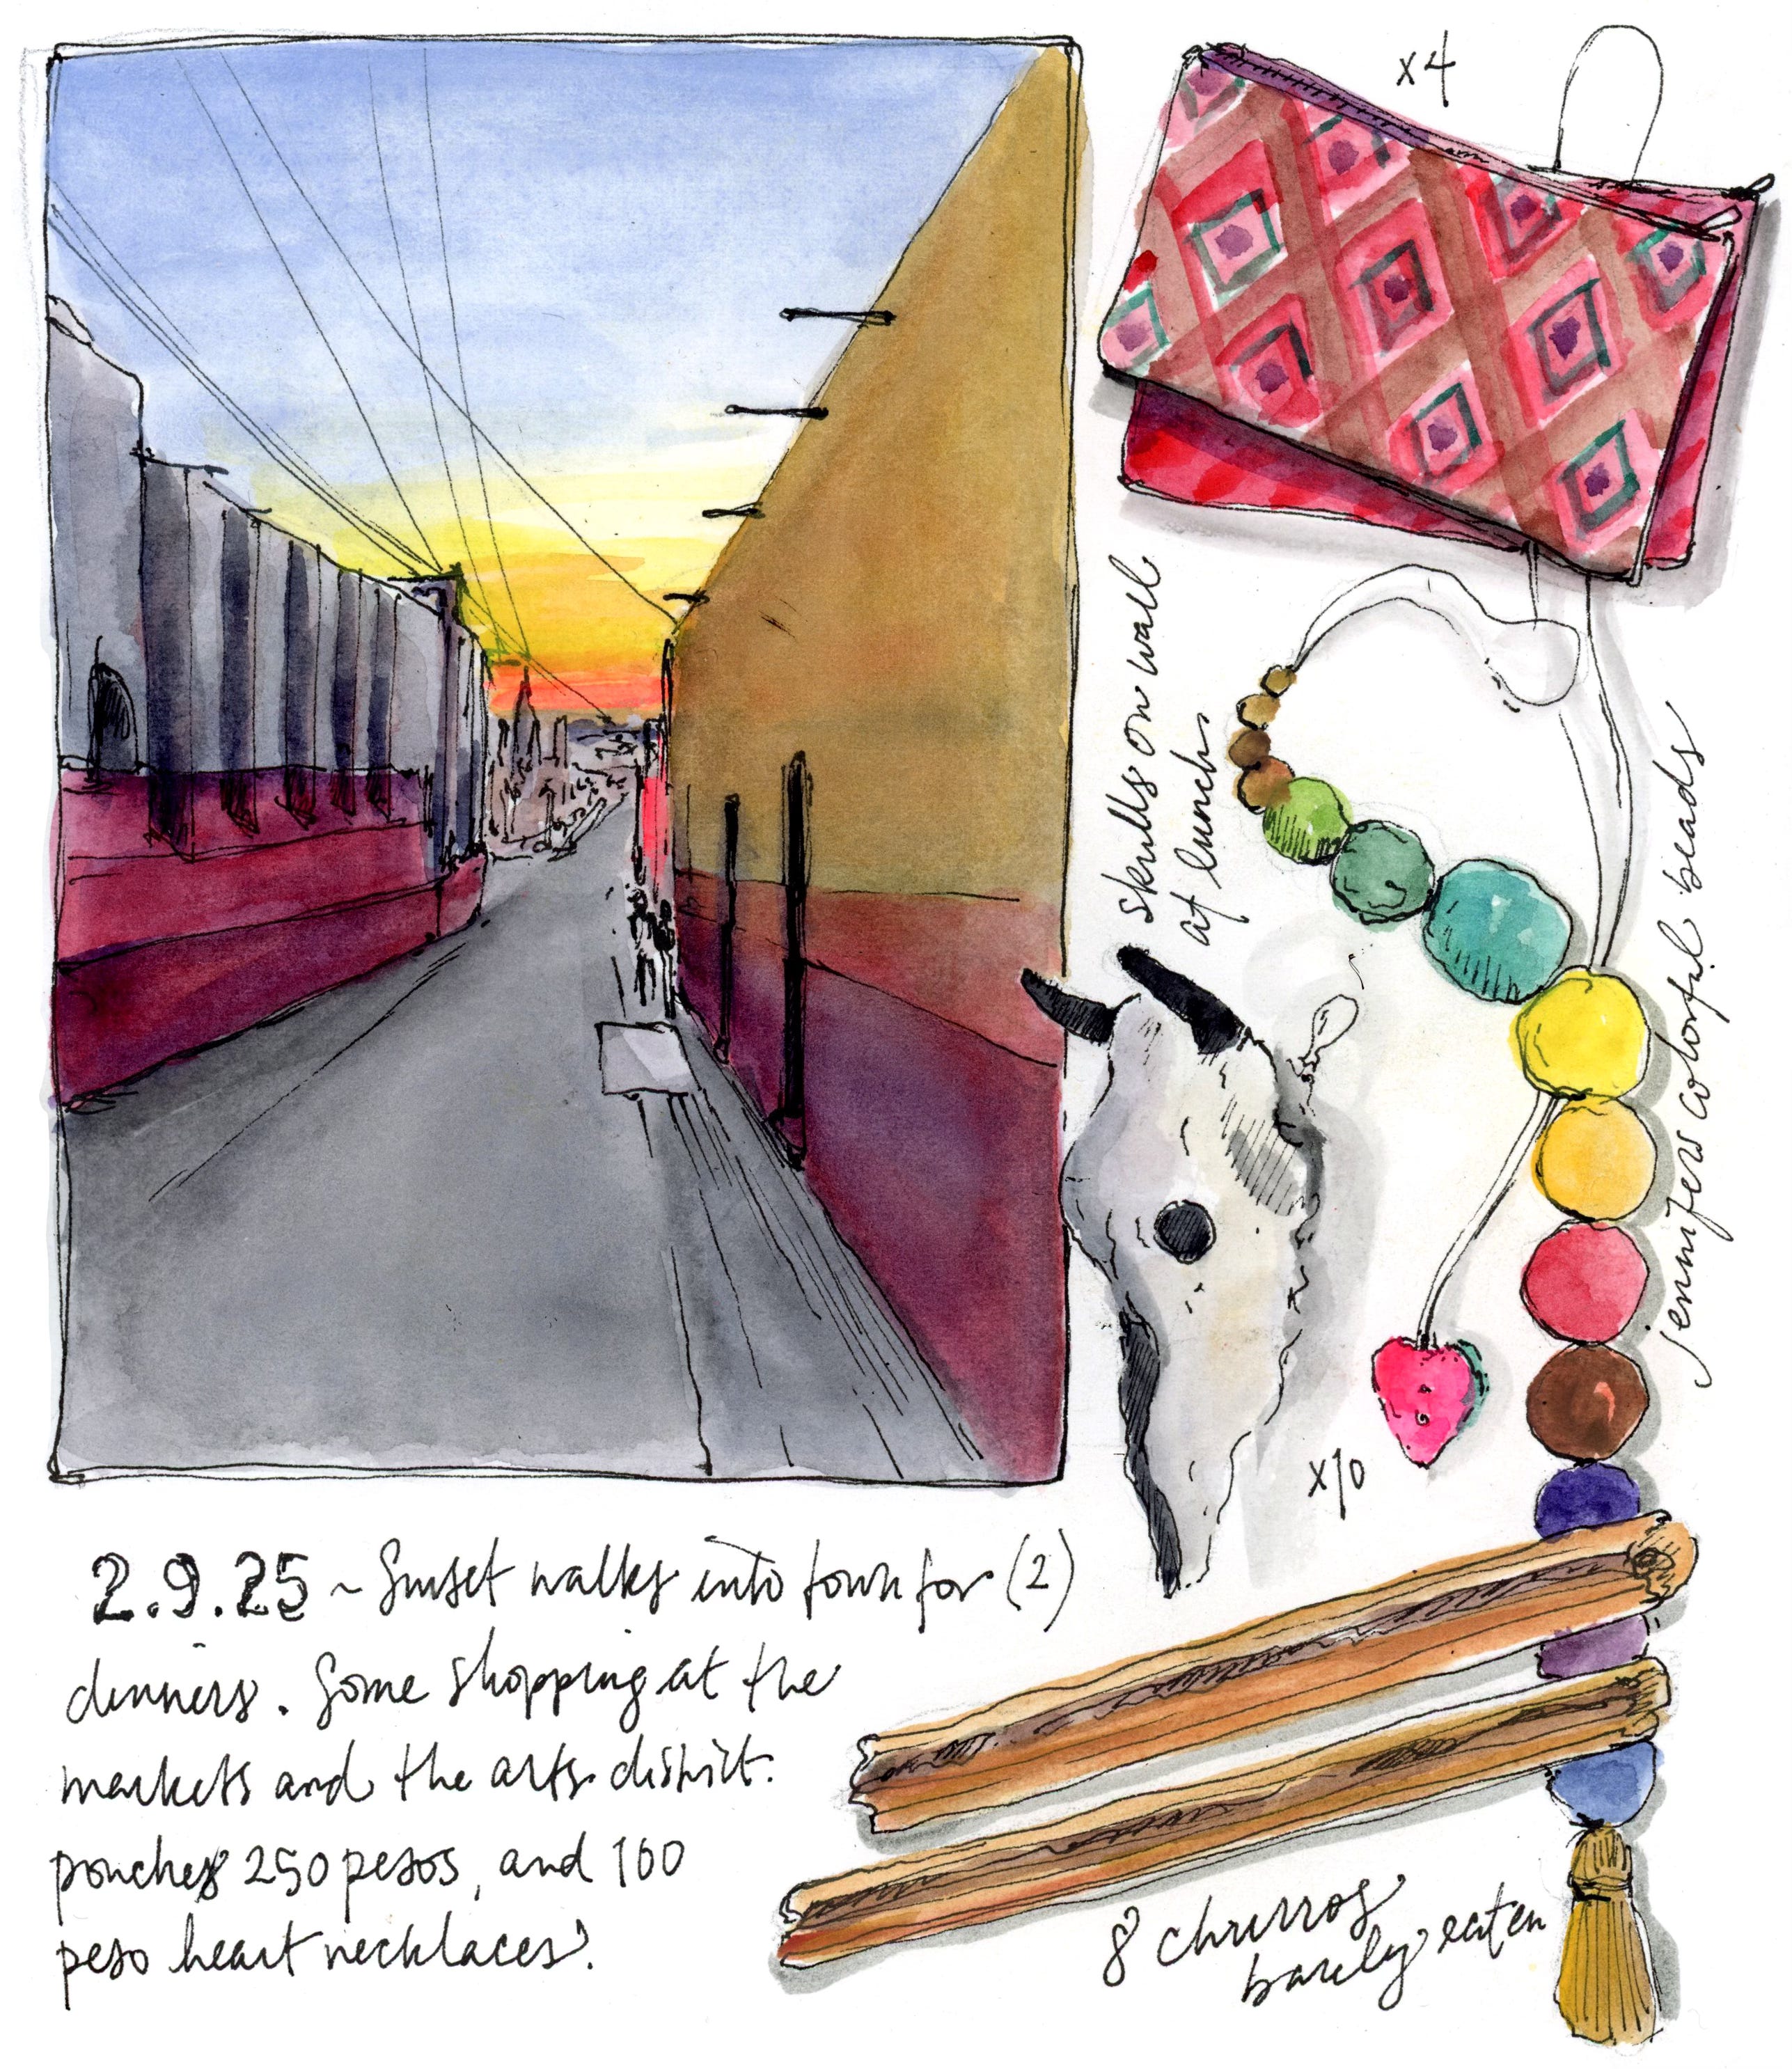 x4
skulls on wall
at lunch
jennifers colorful beads
x10
2.9.25 ~ Sunset walks into town for (2)
dinners. Some shopping at the
markets and the arts district.
pouches 250 pesos, and 100
peso heart necklaces.
8 churros
barely eaten